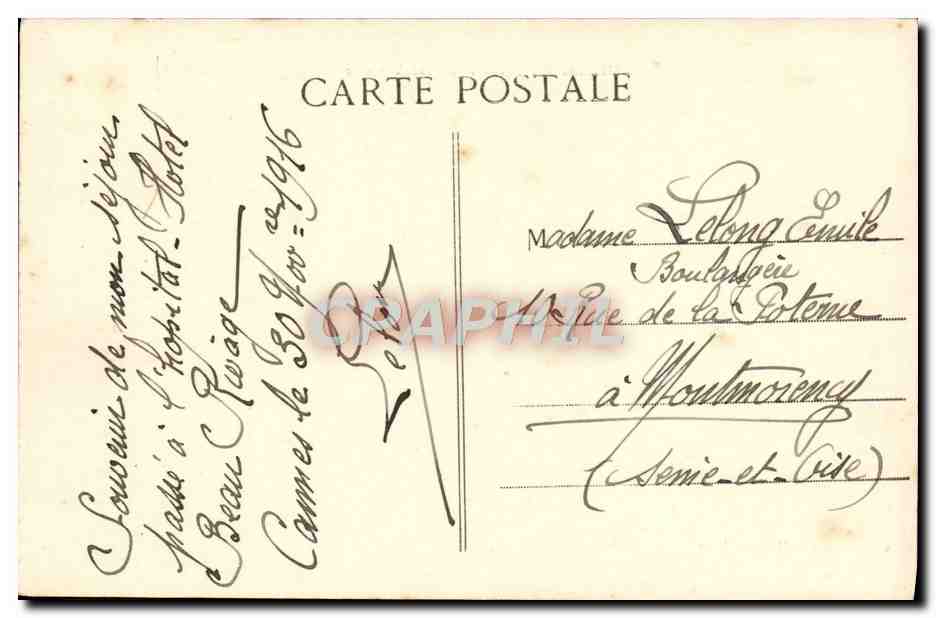 CARTE POSTALE
Souvenir de mon séjour
passé à l'hopital-Hotel
Beau Rivage
Cannes le 30 9bre 1916
Madame Lelong Emile
Boulangère
Rue de la Poterne
à Montmorency
(Seine-et-Oise)
CRAPHIL